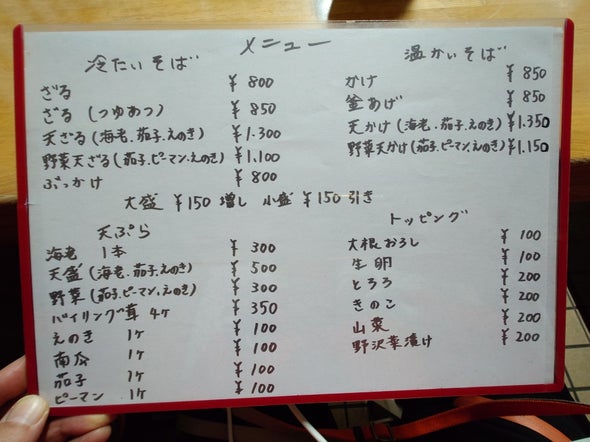 メニュー
冷たいそば
ざる ¥800
ざる(つゆあつ) ¥850
天ざる(海老.茄子.えのき) ¥1.300
野菜天ざる(茄子.ピーマン.えのき) ¥1.100
ぶっかけ ¥800
温かいそば
かけ ¥850
釜あげ ¥850
天かけ(海老.茄子.えのき) ¥1.350
野菜天かけ(茄子.ピーマン.えのき) ¥1.150
大盛 ¥150増し 小盛 ¥150引き
天ぷら
海老 1本 ¥300
天盛(海老.茄子.えのき) ¥500
野菜(茄子.ピーマン.えのき) ¥300
バイリング茸 4ケ ¥350
えのき 1ケ ¥100
南瓜 1ケ ¥100
茄子 1ケ ¥100
ピーマン 1ケ ¥100
トッピング
大根おろし ¥100
生卵 ¥100
とろろ ¥200
きのこ ¥200
山菜 ¥200
野沢菜漬け ¥200